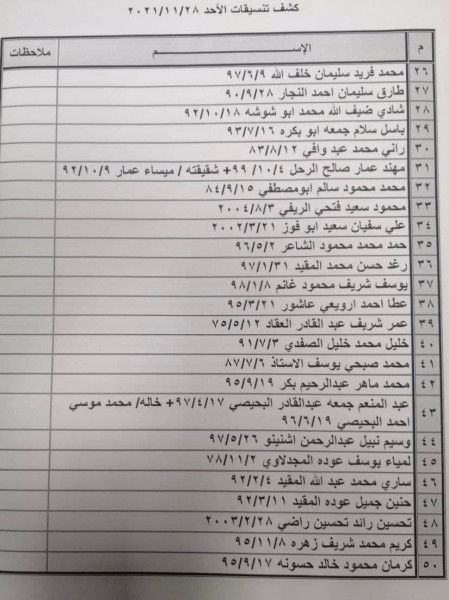 كشف تنسيقات الأحد ٢٠٢١/١١/٢٨
م الإســـــم ملاحظات
٢٦ محمد فريد سليمان خلف الله ٩٧/٦/٩
٢٧ طارق سليمان احمد النجار ٩٠/٩/٢٨
٢٨ شادي ضيف الله محمد ابو شوشه ٩٢/١٠/١٨
٢٩ باسل سلام جمعه ابو بكره ٩٣/٧/١٦
٣٠ راني محمد عبد وافي ٨٣/٨/١٢
٣١ مهند عمار صالح الرحل ٩٩/١٠/٤+ شقيقته / ميساء عمار ٩٢/١٠/٩
٣٢ محمد محمود سالم ابومصطفي ٨٤/٩/١٥
٣٣ محمود سعيد فتحي الريفي ٢٠٠٤/٨/٣
٣٤ علي سفيان سعيد ابو فوز ٢٠٠٢/٣/٢١
٣٥ حمد محمد محمود الشاعر ٩٦/٥/٢
٣٦ رغد حسن محمد المقيد ٩٧/١/٣١
٣٧ يوسف شريف محمود غانم ٩٨/١/٨
٣٨ عطا احمد ارويعي عاشور ٩٥/٣/٢١
٣٩ عمر شريف عبد القادر العقاد ٧٥/٥/١٢
٤٠ خليل محمد خليل الصفدي ٩١/٧/٣
٤١ محمد صبحي يوسف الاستاذ ٨٧/٧/٦
٤٢ محمد ماهر عبدالرحيم بكر ٩٥/٩/١٩
٤٣ عبد المنعم جمعه عبدالقادر البحيصي ٩٧/٤/١٧+ خاله/ محمد موسي
احمد البحيصي ٩٦/٦/١٩
٤٤ وسيم نبيل عبدالرحمن اشنينو ٩٧/٥/٢٦
٤٥ لمياء يوسف عوده المجدلاوي ٧٨/١١/٢
٤٦ ساري محمد عبد الله المقيد ٩٢/٢/٤
٤٧ حنين جميل عوده المقيد ٩٢/٣/١١
٤٨ تحسين رائد تحسين راضي ٢٠٠٣/٢/٢٨
٤٩ كريم محمد شريف زهره ٩٥/١١/٨
٥٠ كرمان محمود خالد حسونه ٩٥/٩/١٧